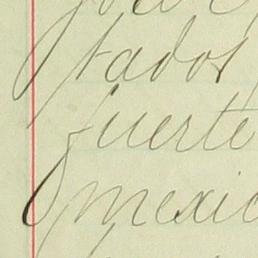 tados
fuerte
mexic